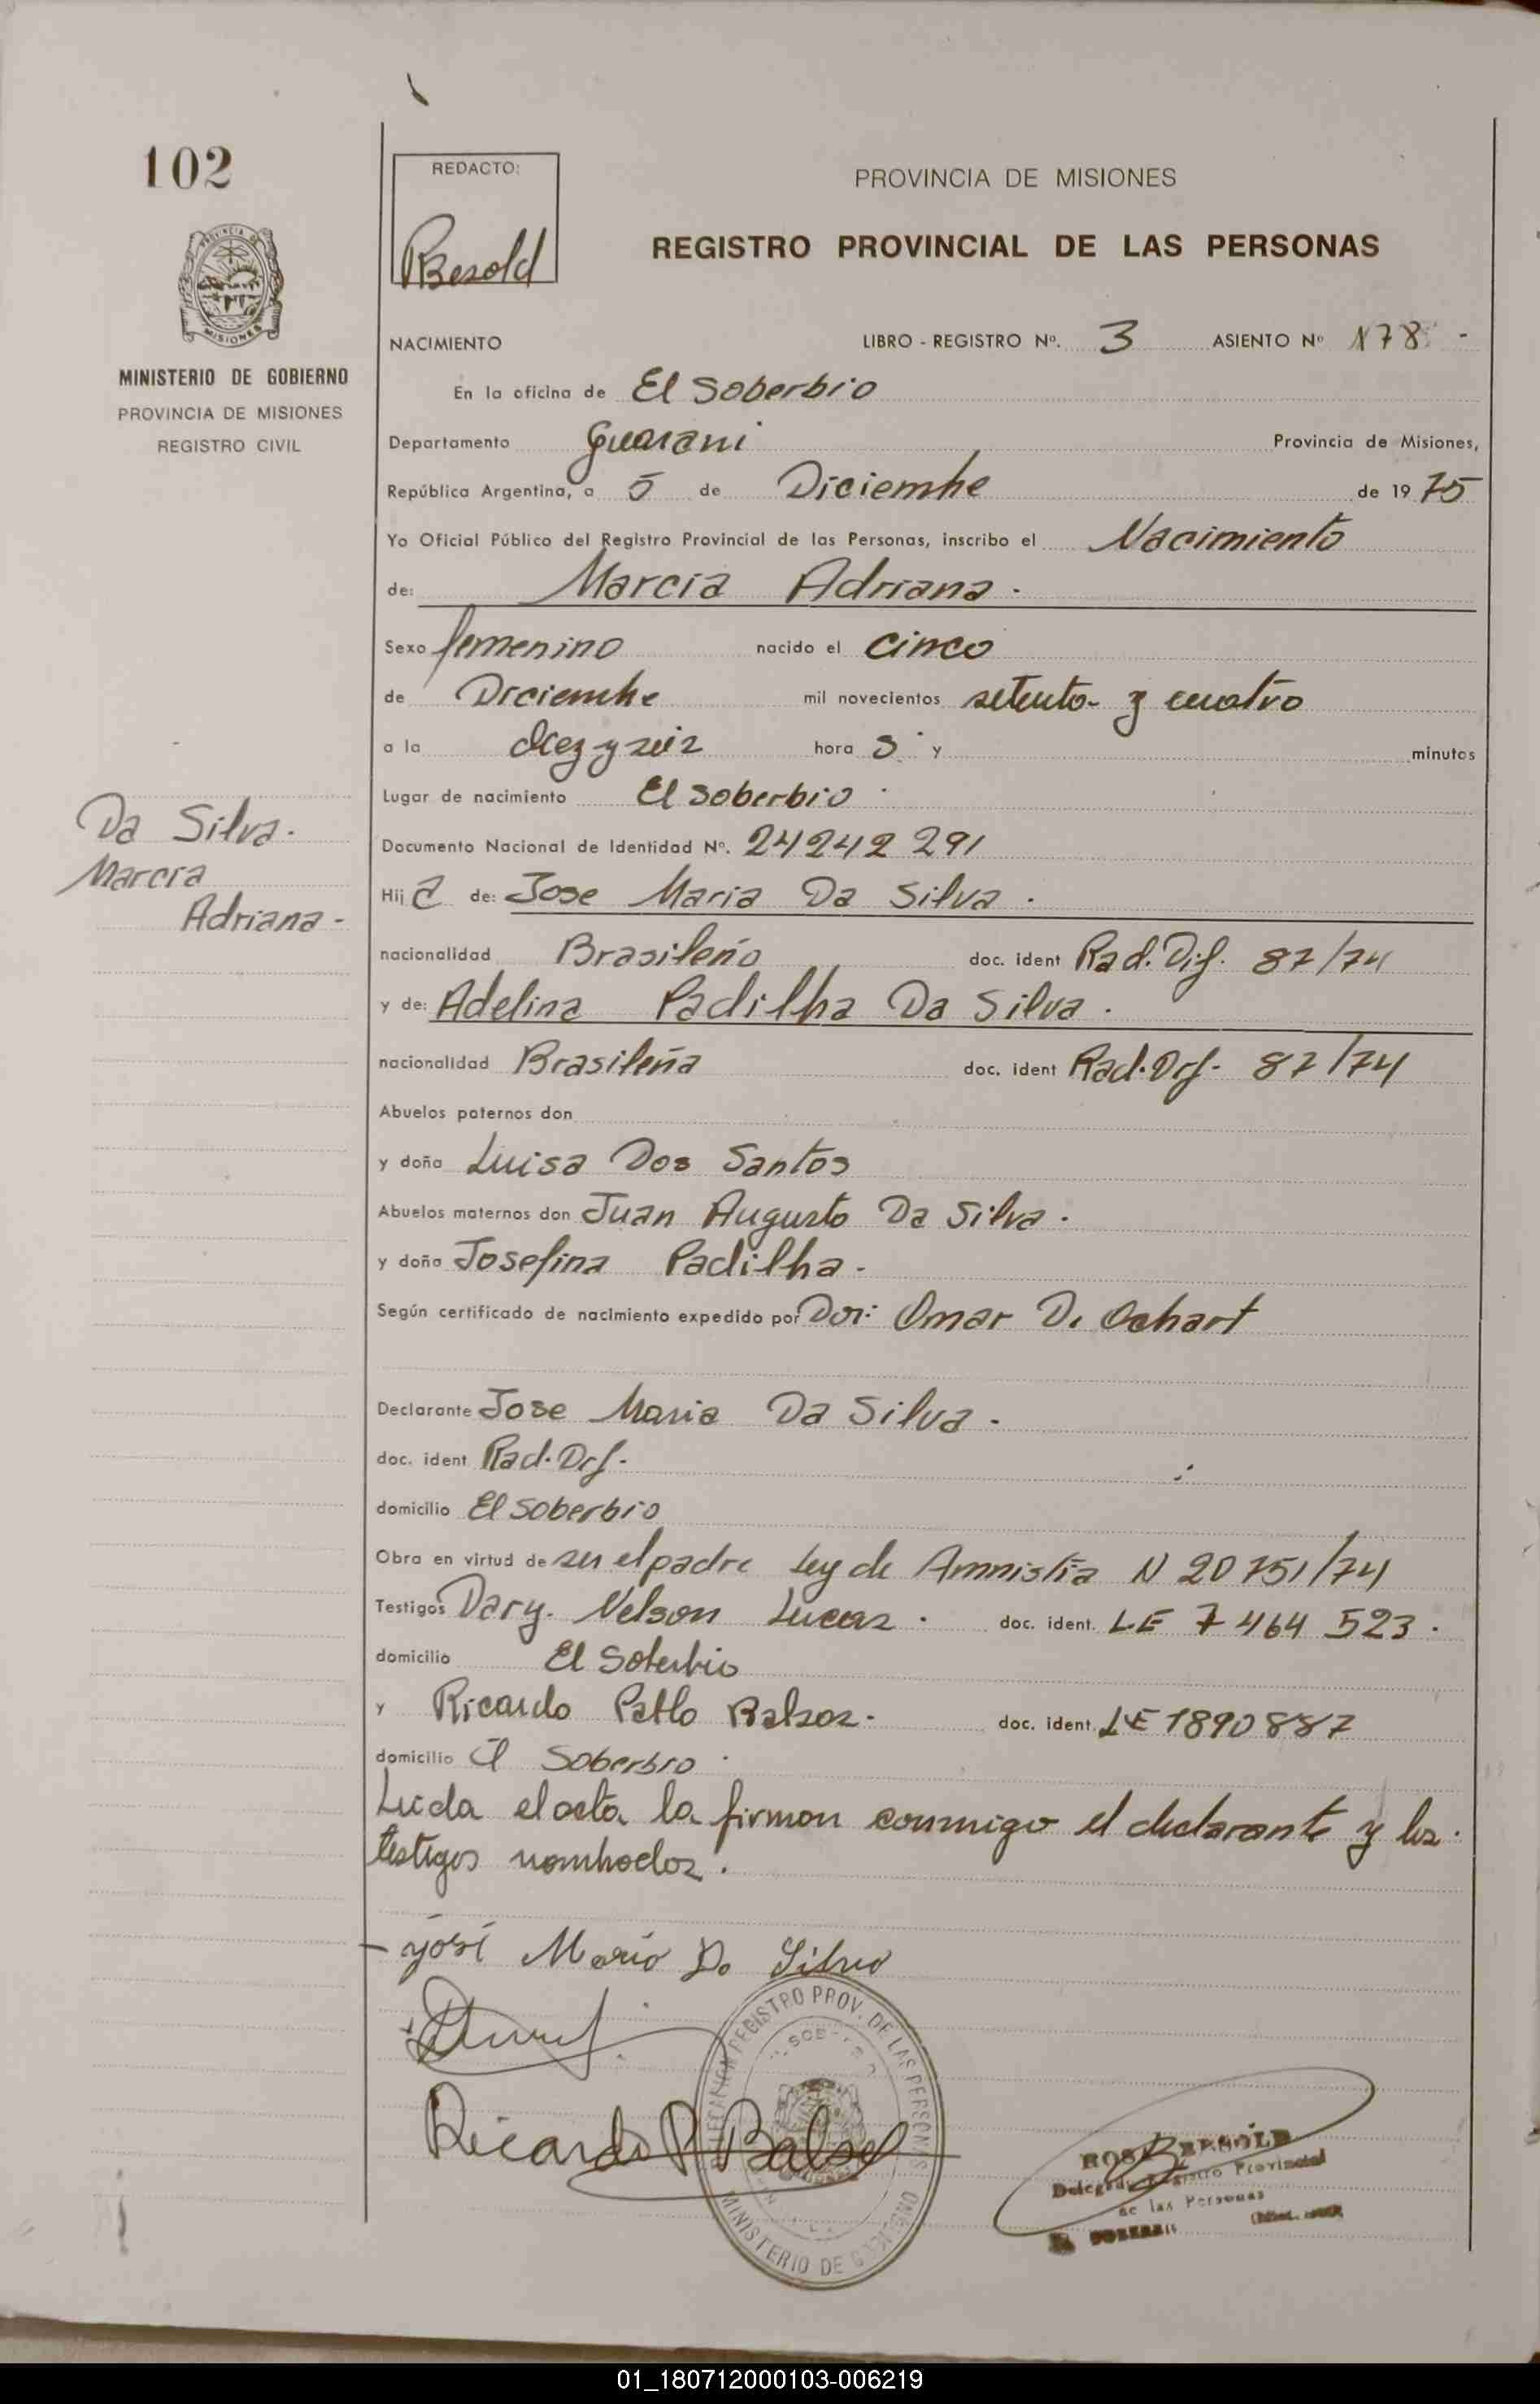 102
REDACTO:
Besold
PROVINCIA DE MISIONES
REGISTRO PROVINCIAL DE LAS PERSONAS
PROVINCIA DE
MISIONES
MINISTERIO DE GOBIERNO
PROVINCIA DE MISIONES
REGISTRO CIVIL
NACIMIENTO LIBRO - REGISTRO Nº. 3 ASIENTO Nº 178 -
En la oficina de El Soberbio
Departamento Guarani Provincia de Misiones,
República Argentina, a 5 de Diciembre de 1975
Yo Oficial Público del Registro Provincial de las Personas, inscribo el Nacimiento
de: Marcia Adriana.
Sexo femenino nacido el cinco
de Diciembre mil novecientos setenta y cuatro
a la diez y seis hora s y minutos
Lugar de nacimiento El Soberbio
Documento Nacional de Identidad Nº. 24242291
Da Silva.
Marcia
Adriana-
Hij a de: Jose Maria Da Silva.
nacionalidad Brasileño doc. ident Rad. Dif. 87/74
y de: Adelina Padilha Da Silva.
nacionalidad Brasileña doc. ident Rad. Dif. 87/74
Abuelos paternos don
y doña Luisa Dos Santos
Abuelos maternos don Juan Augusto Da Silva.
y doña Josefina Padilha.
Según certificado de nacimiento expedido por Dor: Omar D. Ochart
Declarante Jose Maria Da Silva.
doc. ident Rad. Dif.
domicilio El Soberbio
Obra en virtud de ser el padre Ley de Amnistía N 20751/74
Testigos Dary. Nelson Lucas. doc. ident. LE 7464523.
domicilio El Soberbio
y Ricardo Pablo Balsos. doc. ident. LE 1890887
domicilio El Soberbio
Leida el acta la firman conmigo el declarante y los
testigos nombrados.
José Mario Da Silva
Ricardo P Balsos
REGISTRO PROV. DE LAS PERSONAS
MINISTERIO DE GOBIERNO
ROSA BESOLD
Delegada Registro Provincial
de las Personas
EL SOBERBIO
01_180712000103-006219